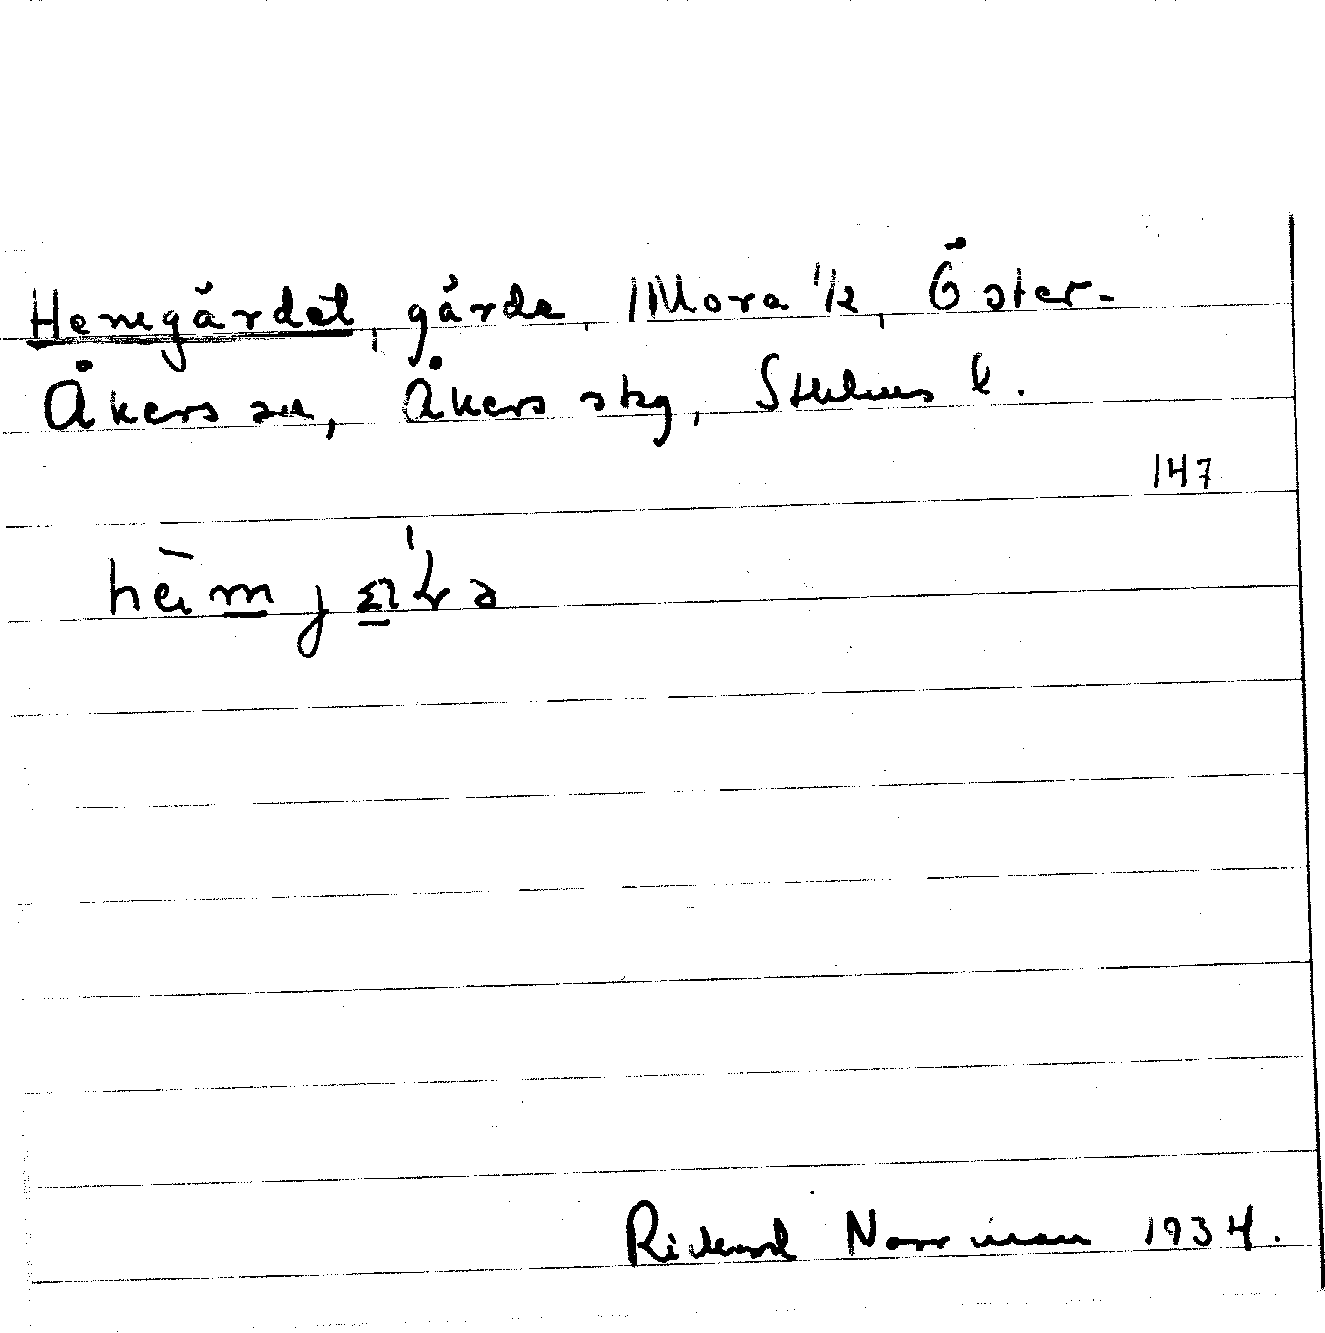 Hemgärdet, gärde, Mora 1/2, Öster-
Åkers sn, Åkers skg, Sthlms l.
147
Rickard Norrman 1934.